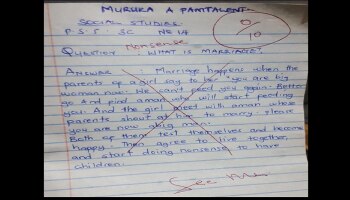 MURUKA A PAMTALENT
SOCIAL STUDIES
P.S.S: 3C NR 14
0/10
Nonsense
QUESTION: WHAT IS MARRIAGE?
ANSWER Marriage happens when the
parents of a girl say to be you are big
woman now. We can't feed you again. Better
go and find a man who will start feeding
you. And the girl meet with a man whose
parents shout at him to marry please
you are now a big man.
Both of them test themselves and become
happy. Then agree to live together,
and start doing nonsense to have
children.
See Me